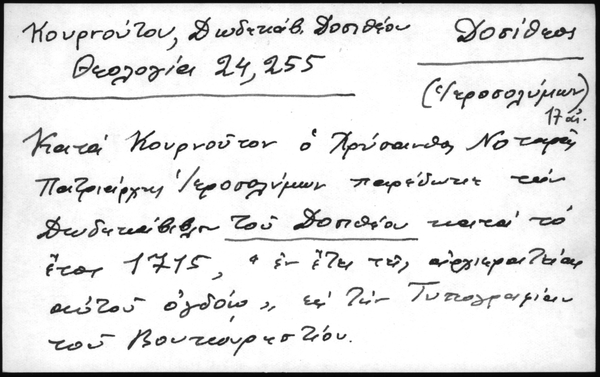 Κουρνούτου, Δωδεκάβ. Δοσιθέου
Θεολογία 24, 255
Δοσίθεος
(Ἱεροσολύμων)
17 αἰ.
Κατὰ Κουρνοῦτον ὁ Χρύσανθος Νοταρᾶς
Πατριάρχης Ἱεροσολύμων παρέδωκε τὴν
Δωδεκάβιβλον τοῦ Δοσιθέου κατὰ τὸ
ἔτος 1715, "ἐν ἔτει τῆς ἀρχιερατείας
αὐτοῦ ὀγδόῳ", εἰς τὴν Τυπογραφίαν
τοῦ Βουκουρεστίου.